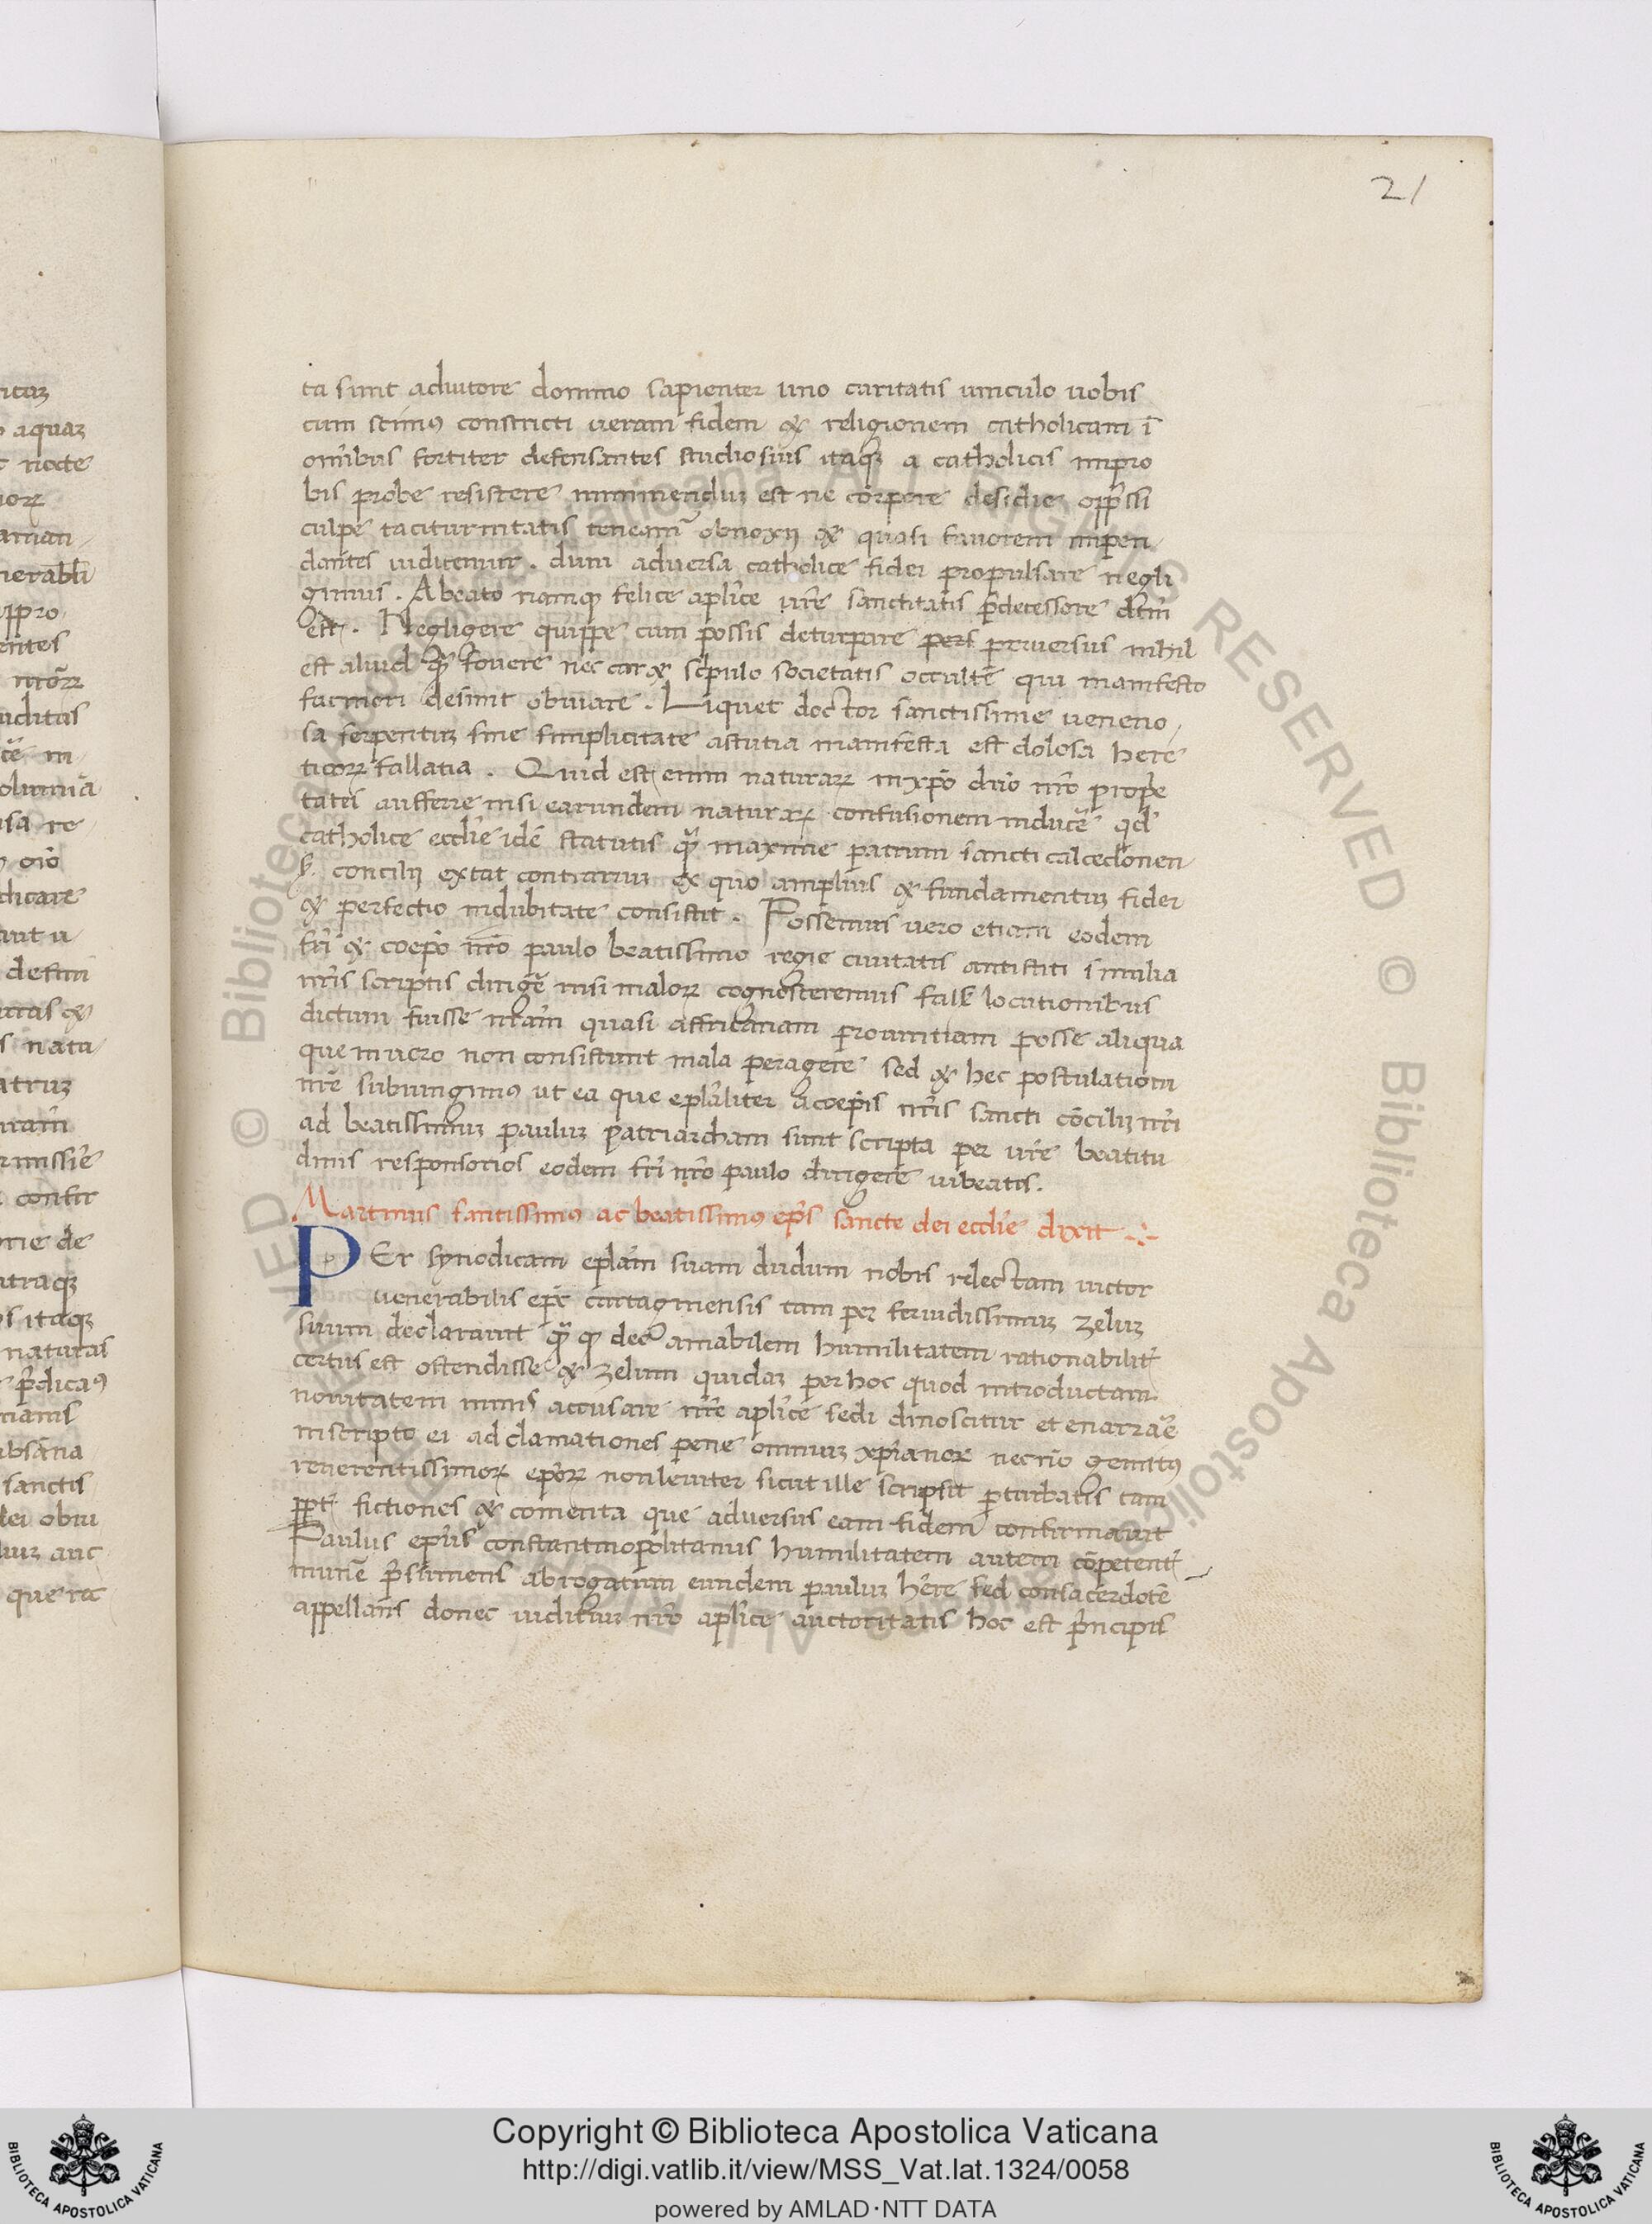 21
ta sunt adiutore domino sapienter uno caritatis uinculo uobis
cum stimus constricti ueram fidem & religionem catholicam ī
om̄ibus fortiter defensantes studiosius itaq; a catholicis impro
bis probe resistere imminenduʒ est ne corpore desidie opp̄ssi
culpe taciturnitatis teneam̄ obnoxij & quasi fauorem impen
dantes iudicemur . dum aduersa catholice fidei propulsare negli
gimus . A beato namq; felice apl̄ice ur̄e sanctitatis p̄decessore dc̄m
est . Negligere quippe cum possis deturpare pers peruersius nihil
est aliud q̄ fouere nec car& sc̄pulo societatis occulte qui manifesto
facinori desinit obuiare . Liquet doctor sanctissime ueneno
sa serpentiuʒ sine simplicitate astutia manifesta est dolosa here
ticoꝝ fallatia . Quid est enim naturaꝝ in xp̄o dn̄o nr̄o prope
tates aufferre nisi earundem naturaꝝ confusionem induc̄e qd̄
catholice eccl̄ie idē statutis q̄ maxime patrum sancti calcedonen
s̄ concilij extat contrariuʒ ex quo amplius & fundamentuʒ fidei
& perfectio indubitate consistit . Possemus uero etiam eodem
fr̄i & coep̄o nr̄o paulo beatissimo regie ciuitatis antistiti similia
nr̄is scriptis diriḡe nisi maloꝝ cognosceremus fals̄ locutionibus
dictum fuisse nr̄am quasi affricanam prouintiam posse aliqua
que in uero non consistunt mala peragere sed & hec postulationi
nr̄e subiungimus ut ea que epl̄aliter a coep̄is nr̄is sancti cōcilij nr̄i
ad beatissimuʒ pauluʒ patriarcham sunt scripta per ur̄e beatitu
dinis responsorios eodem fr̄i nr̄o paulo dirigere iubeatis.
Martinus santissimus ac beatissimus ep̄s sancte dei eccl̄ie dixit
PEr synodicam epl̄am suam dudum nobis relectam uictor
uenerabilis ep̄c cartaginensis tam per feruidissimuʒ zeluʒ
suum declarauit q̄ q; deo amabilem humilitatem rationabilit̄
certus est ostendisse & zelum quidaʒ per hoc quod introductam
nouitatem nimis accusare nr̄e apl̄ice sedi dinoscitur et enarra̅e
inscripto ei ad clamationes pene omniuʒ xp̄ianoꝝ necnō gemitus
reuerentissimoꝝ ep̄oꝝ non leuiter sicut ille scripsit p̄turbatis tam
pp̄t̄ fictiones & comenta que aduersus eam fidem confirmauit
Paulus ep̄us constantinopolitanus humilitatem autem cōpetent̄
mun̄e p̄sumens abrogatum eundem pauluʒ her̄e sed consacerdotē
appellans donec iudituʒ nr̄o apl̄ice auctoritatis hoc est p̄ncipis
Copyright © Biblioteca Apostolica Vaticana
http://digi.vatlib.it/view/MSS_Vat.lat.1324/0058
powered by AMLAD·NTT DATA